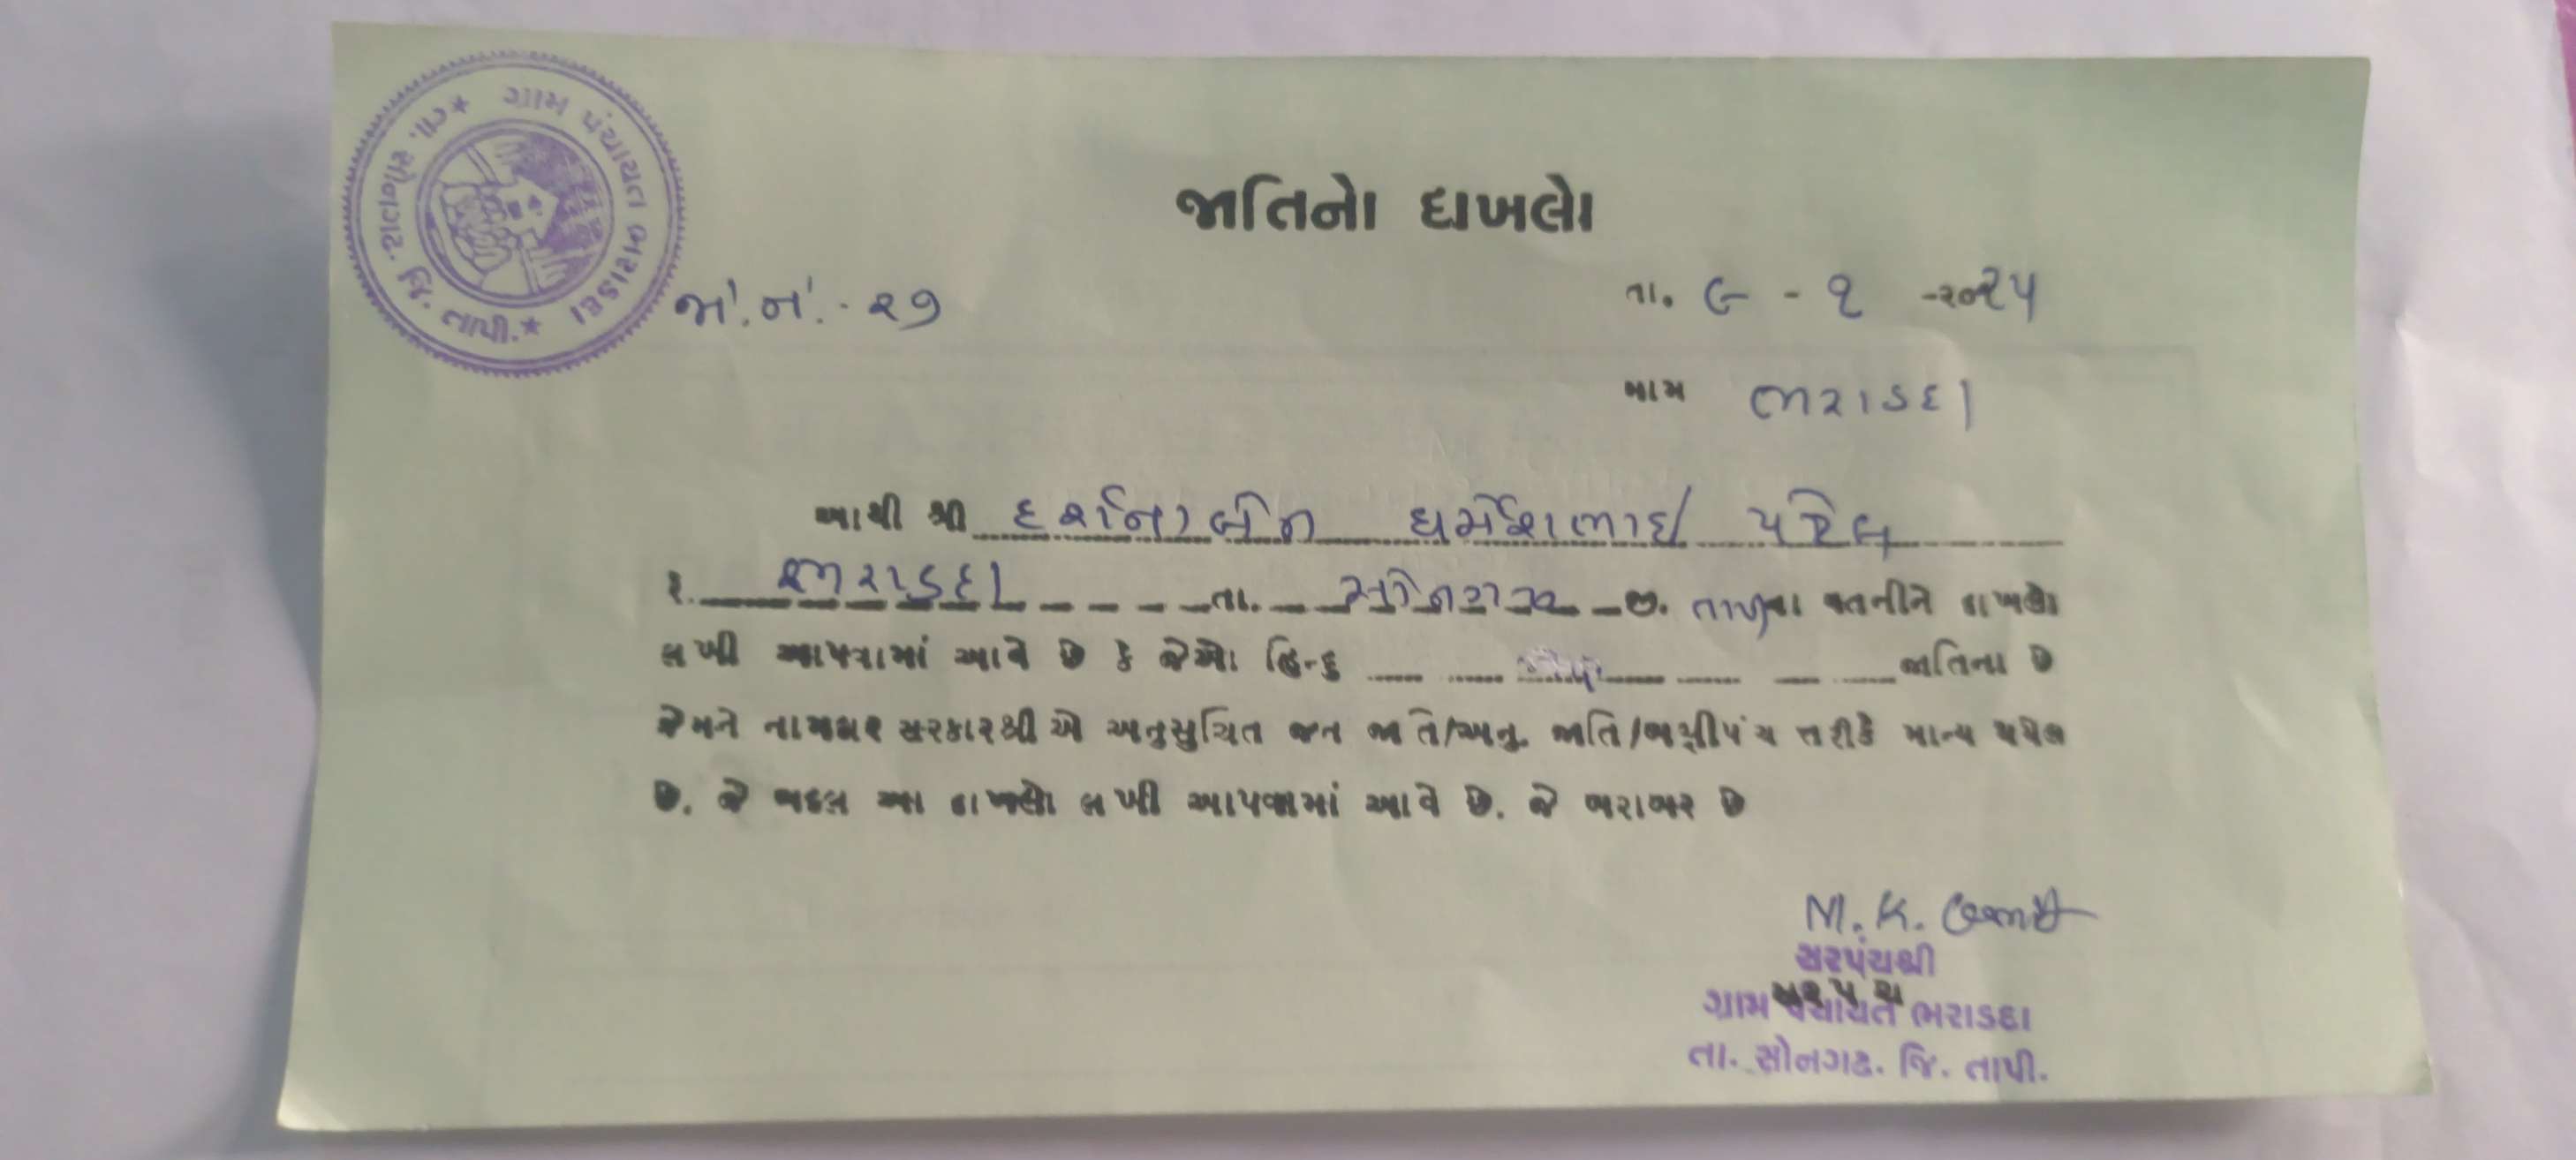 ગ્રામ પંચાયત ભરાડદા
* તા. સોનગઢ. જિ. તાપી. *
જાતિનો દાખલો
જા.નં.- ૨૭
તા. ૯ - ૧ -૨૦૨૫
ગામ ભરાડદા
આથી શ્રી દર્શનાબેન ધર્મેશભાઈ પટેલ
રે. ભરાડદા તા. સોનગઢ જી. તાપીના વતનીને દાખલો
લખી આપવામાં આવે છે કે જેઓ હિન્દુ જાતિના છે
જેમને નામદાર સરકારશ્રી એ અનુસુચિત જન જાતિ/અનુ. જાતિ/બક્ષીપંચ તરીકે માન્ય થયેલ
છે. જે બદલ આ દાખલો લખી આપવામાં આવે છે. જે બરાબર છે
M. K.
સરપંચશ્રી
સરપંચ
ગ્રામ પંચાયત ભરાડદા
તા. સોનગઢ. જિ. તાપી.